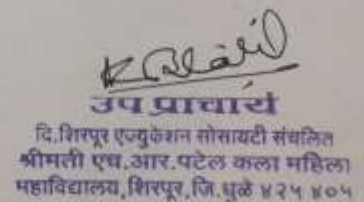 उप प्राचार्य
दि.शिरपूर एज्युकेशन सोसायटी संचलित
श्रीमती एच.आर.पटेल कला महिला
महाविद्यालय,शिरपूर,जि.धुळे ४२५ ४०५